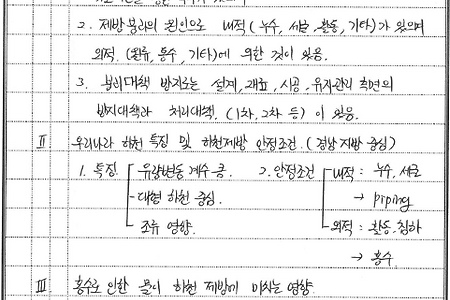 2. 제방붕괴의 원인으로 내적 (누수, 세굴, 활동, 기타)가 있으며
외적. (월류, 홍수, 기타)에 의한 것이 있음.
3. 붕괴대책 방지로는 설계, 재료, 시공, 유지관리 측면의
방지대책과 처리대책. (1차, 2차 등) 이 있음.
Ⅱ 우리나라 하천 특징 및 하천제방 안정조건. (경남 지방 중심)
1. 특징 유량변동 계수 큼. 2. 안정조건 내적 : 누수, 세굴
대형 하천 중심. → piping
조류 영향. 외적 : 활동, 침하
→ 홍수
Ⅲ 홍수로 인한 물이 하천 제방에 미치는 영향.